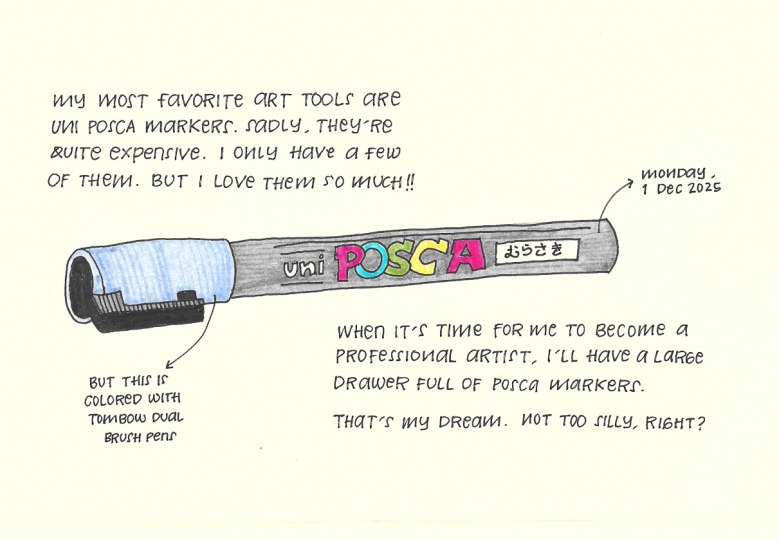 MY MOST FAVORITE ART TOOLS ARE
UNI POSCA MARKERS. SADLY, THEY'RE
QUITE EXPENSIVE. I ONLY HAVE A FEW
OF THEM. BUT I LOVE THEM SO MUCH!!
MONDAY,
1 DEC 2025
uni POSCA むらさき
BUT THIS IS
COLORED WITH
TOMBOW DUAL
BRUSH PENS
WHEN IT'S TIME FOR ME TO BECOME A
PROFESSIONAL ARTIST, I'LL HAVE A LARGE
DRAWER FULL OF POSCA MARKERS.
THAT'S MY DREAM. NOT TOO SILLY, RIGHT?